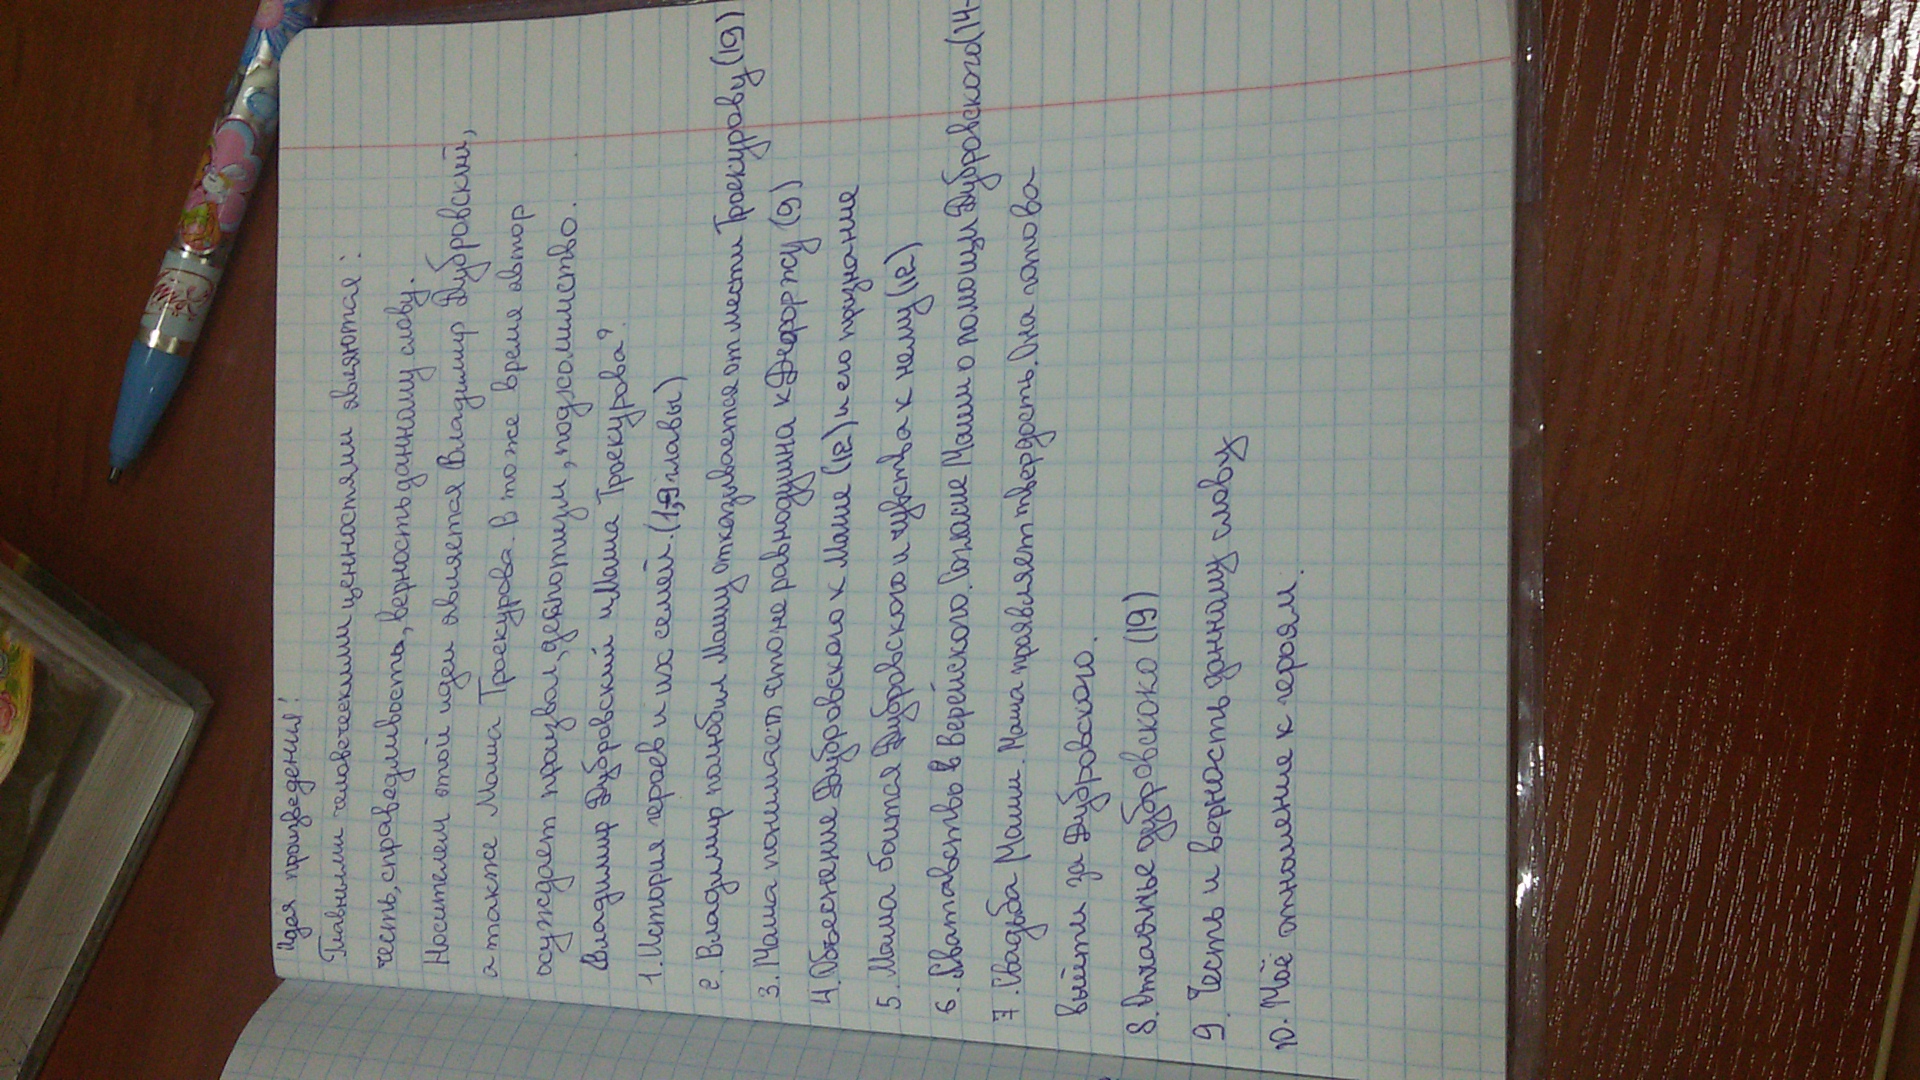 Идея произведения:
Главными человеческими ценностями являются:
честь, справедливость, верность данному слову.
Носителем этой идеи является Владимир Дубровский,
а также Маша Троекурова. В тоже время автор
осуждает произвол, деспотизм, подхолимство.
Владимир Дубровский и Маша Троекурова?
1. История героев и их семей. (1,9 главы)
2. Владимир полюбил Машу отказывается от мести Троекурову (19)
3. Маша понимает что не равнодушна к Дефоржу (9)
4. Объеснение Дубровского к Маше (12) и его признание
5. Маша боится Дубровского и чувства к нему (12)
6. Сватовство в Верейского. Согласие Маши о помощи Дубровского (14-
7. Свадьба Маши. Маша проявляет твердость. Она готова
выйти за Дубровского.
8. Отчаянье дубровского (19)
9. Честь и верность данному слову
10. Моё отношение к героям.